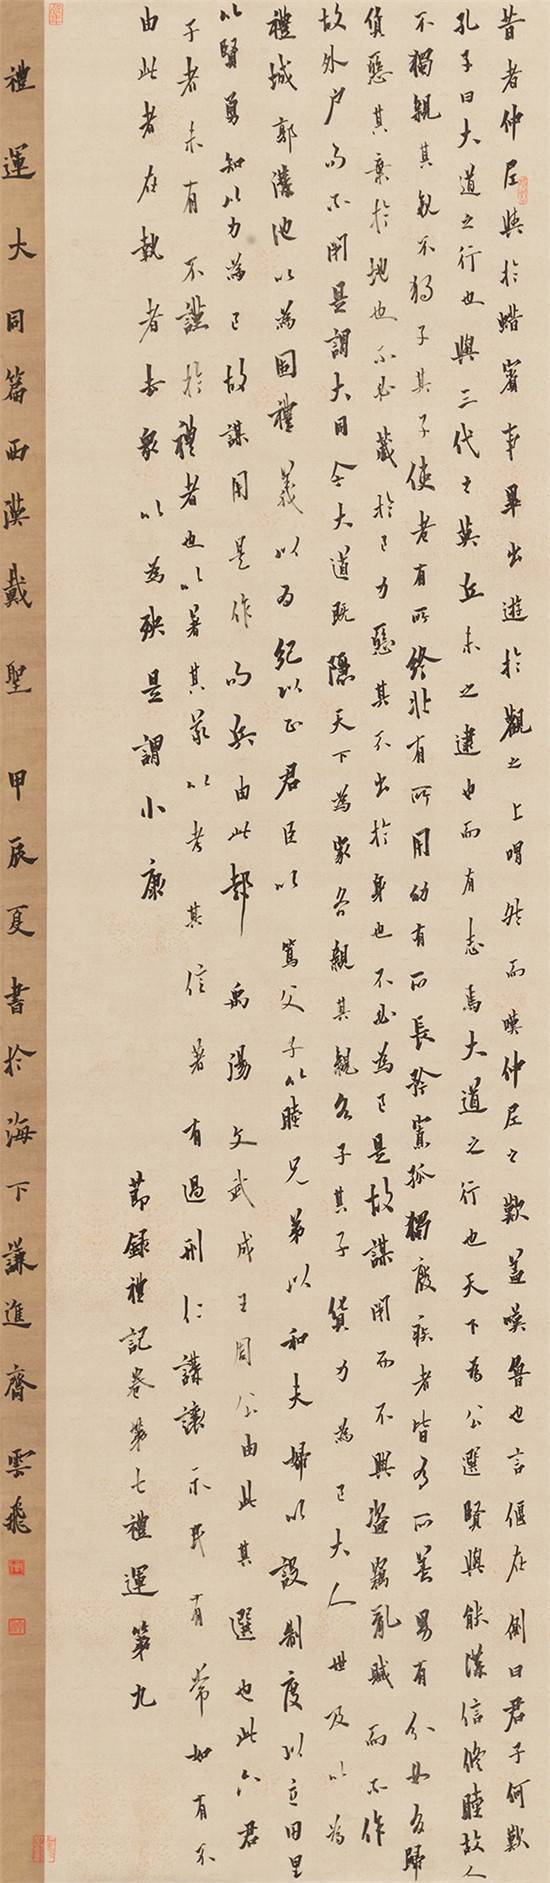 昔者仲尼與於蜡賓事畢出遊於觀之上喟然而嘆仲尼之歎蓋嘆魯也言偃在側曰君子何歎
孔子曰大道之行也與三代之英丘未之逮也而有志焉大道之行也天下為公選賢與能講信修睦故人
不獨親其親不獨子其子使老有所終壯有所用幼有所長矜寡孤獨廢疾者皆有所養男有分女有歸
貨惡其棄於地也不必藏於己力惡其不出於身也不必為己是故謀閉而不興盜竊亂賊而不作
故外户而不閉是謂大同今大道既隱天下為家各親其親各子其子貨力為己大人世及以為
禮城郭溝池以為固禮義以為紀以正君臣以篤父子以睦兄弟以和夫婦以設制度以立田里
以賢勇知以功為己故謀用是作而兵由此起禹湯文武成王周公由此其選也此六君
子者未有不謹於禮者也以著其義以考其信著有過刑仁講讓示民有常如有不
由此者在執者去眾以為殃是謂小康
節錄禮記卷第七禮運第九
禮運大同篇西漢戴聖 甲辰夏書於海下謙進齋雲飛